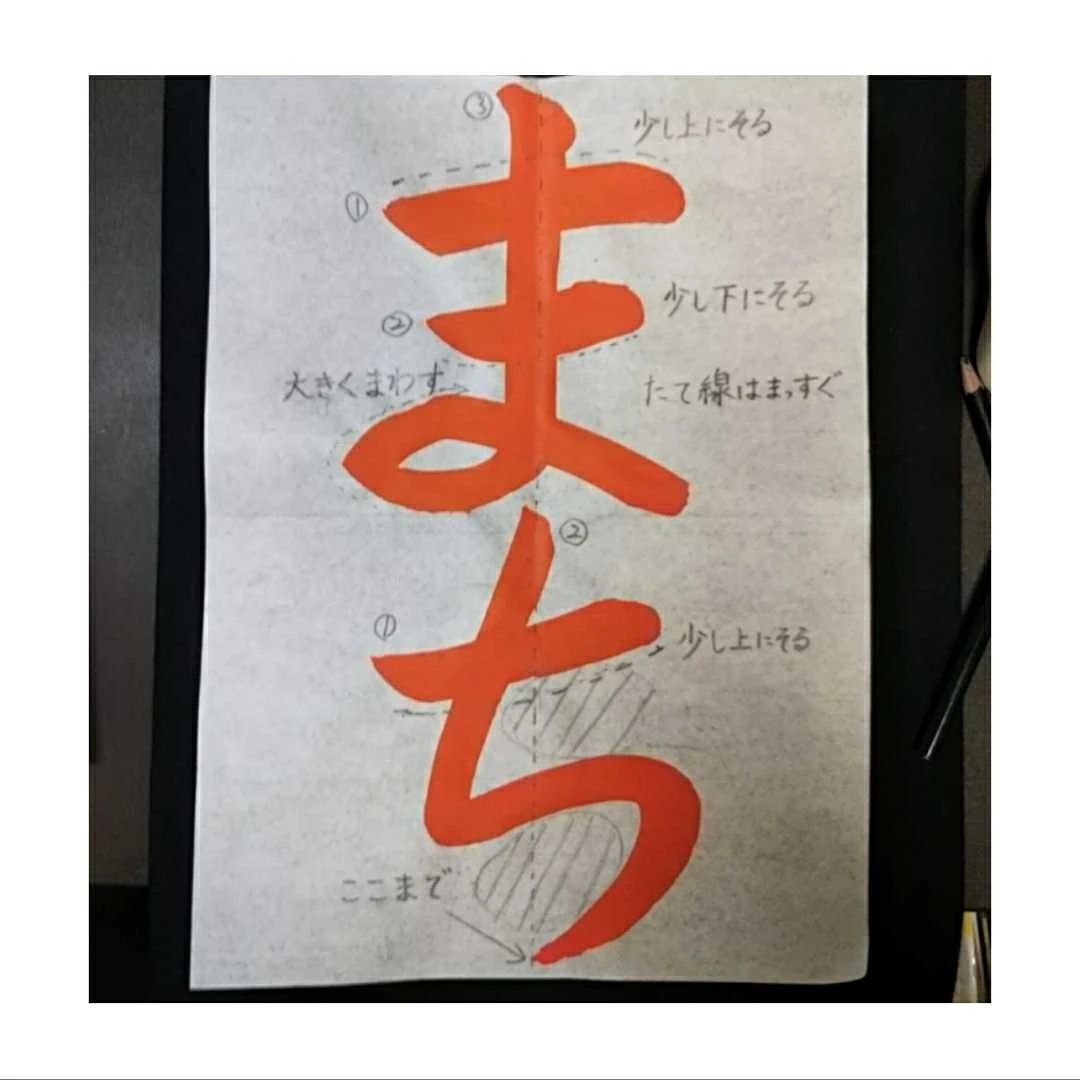 まち
③
少し上にそる
①
②
少し下にそる
大きくまわす
たて線はまっすぐ
②
①
少し上にそる
ここまで